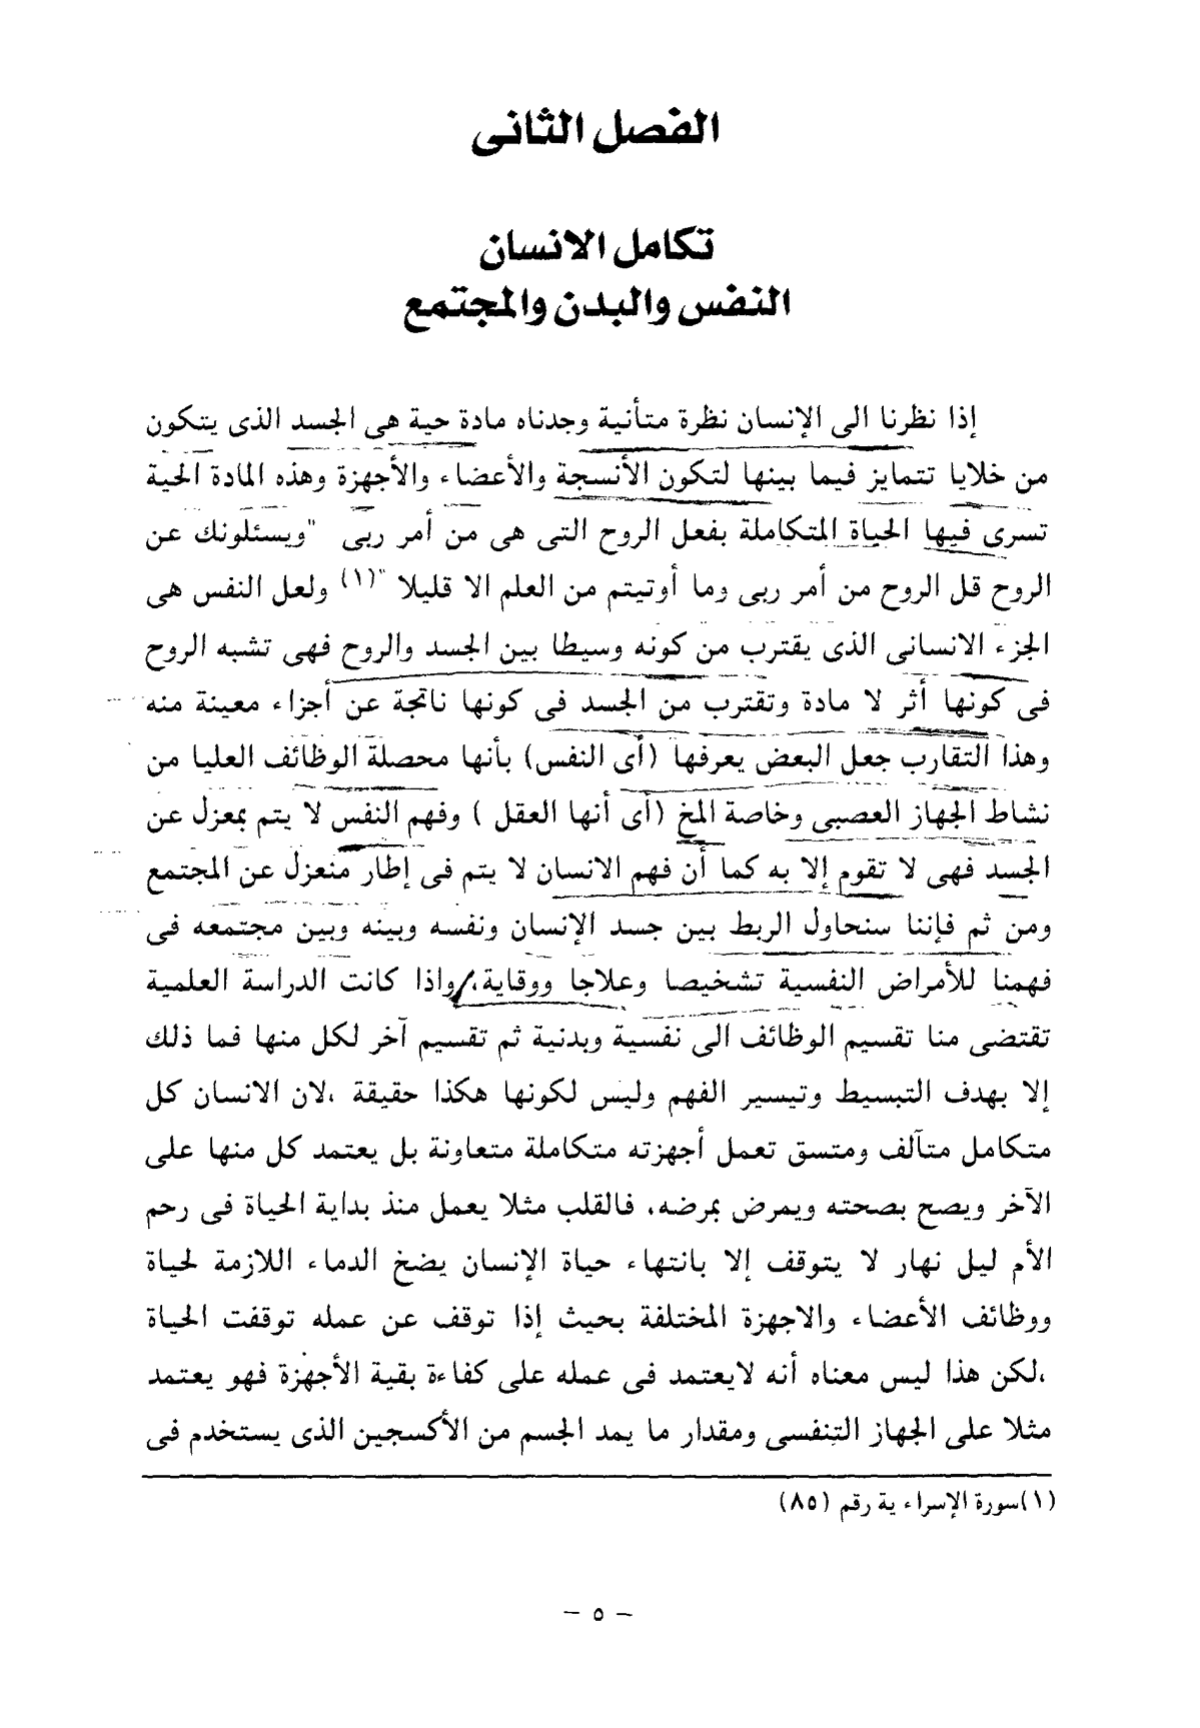 الفصل الثانى
تكامل الانسان
النفس والبدن والمجتمع
إذا نظرنا الى الإنسان نظرة متأنية وجدناه مادة حية هى الجسد الذى يتكون
من خلايا تتمايز فيما بينها لتكون الأنسجة والأعضاء والأجهزة وهذه المادة الحية
تسرى فيها الحياة المتكاملة بفعل الروح التى هى من أمر ربى "ويسئلونك عن
الروح قل الروح من أمر ربى وما أوتيتم من العلم الا قليلا "(١) ولعل النفس هى
الجزء الانسانى الذى يقترب من كونه وسيطا بين الجسد والروح فهى تشبه الروح
فى كونها أثر لا مادة وتقترب من الجسد فى كونها ناتجة عن أجزاء معينة منه
وهذا التقارب جعل البعض يعرفها (أى النفس) بأنها محصلة الوظائف العليا من
نشاط الجهاز العصبى وخاصة المخ (أى أنها العقل ) وفهم النفس لا يتم بمعزل عن
الجسد فهى لا تقوم إلا به كما أن فهم الانسان لا يتم فى إطار منعزل عن المجتمع
ومن ثم فإننا سنحاول الربط بين جسد الإنسان ونفسه وبينه وبين مجتمعه فى
فهمنا للأمراض النفسية تشخيصا وعلاجا ووقاية، واذا كانت الدراسة العلمية
تقتضى منا تقسيم الوظائف الى نفسية وبدنية ثم تقسيم آخر لكل منها فما ذلك
إلا بهدف التبسيط وتيسير الفهم وليس لكونها هكذا حقيقة ،لان الانسان كل
متكامل متآلف ومتسق تعمل أجهزته متكاملة متعاونة بل يعتمد كل منها على
الآخر ويصح بصحته ويمرض بمرضه. فالقلب مثلا يعمل منذ بداية الحياة فى رحم
الأم ليل نهار لا يتوقف إلا بانتهاء حياة الإنسان يضخ الدماء اللازمة لحياة
ووظائف الأعضاء والاجهزة المختلفة بحيث إذا توقف عن عمله توقفت الحياة
،لكن هذا ليس معناه أنه لايعتمد فى عمله على كفاءة بقية الأجهزة فهو يعتمد
مثلا على الجهاز التنفسى ومقدار ما يمد الجسم من الأكسجين الذى يستخدم فى
(١)سورة الإسراء ية رقم (٨٥)
– ٥ –